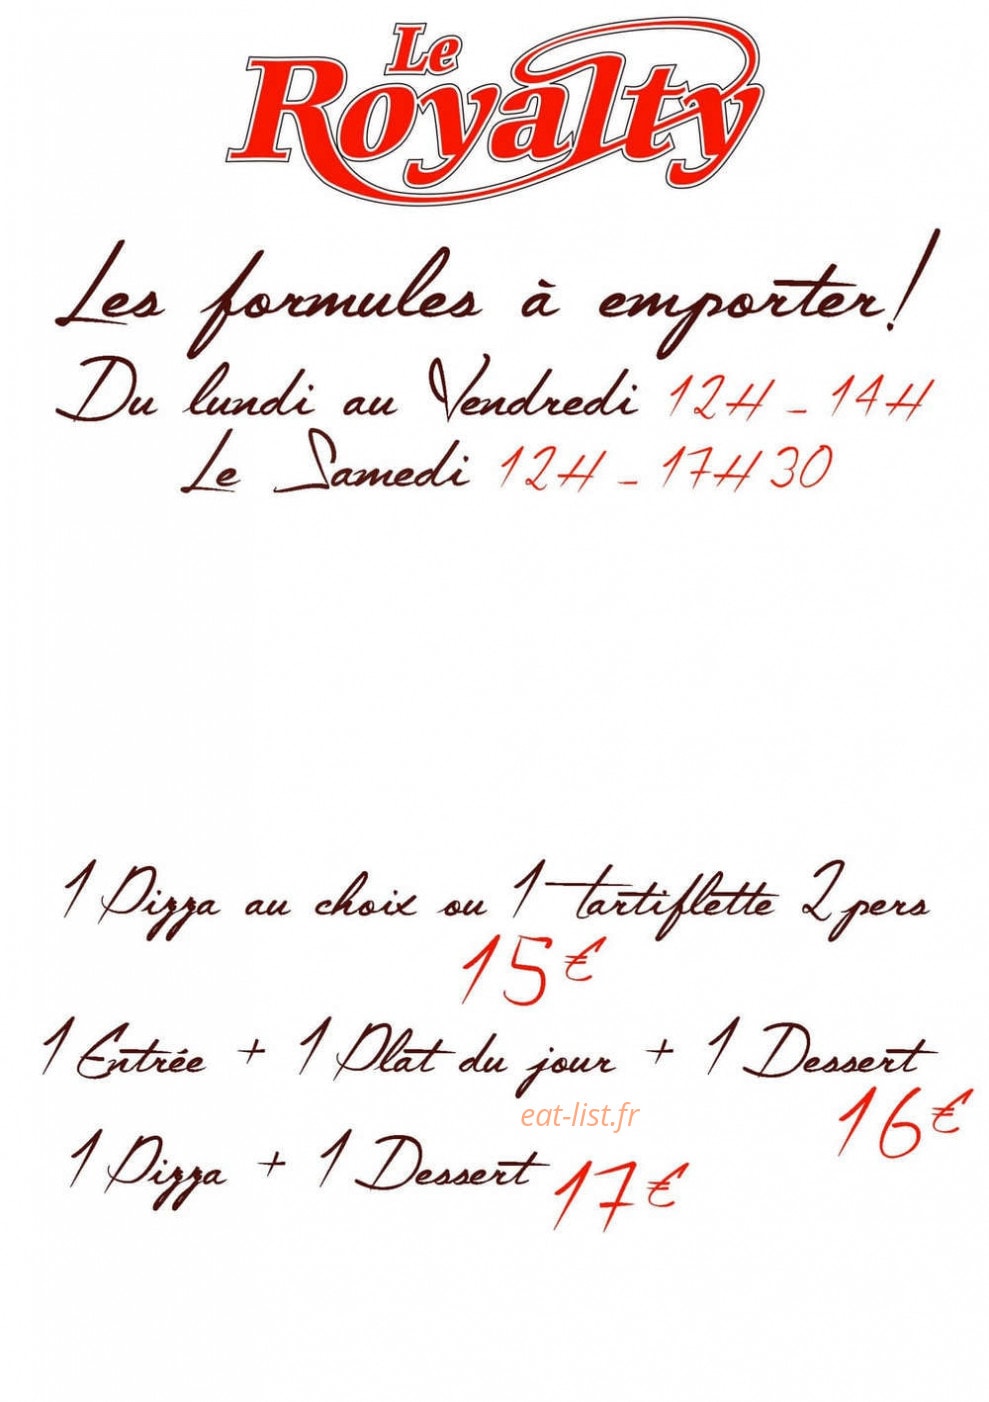 Le
Royalty
Les formules à emporter!
Du lundi au Vendredi 12H - 14H
Le Samedi 12H - 17H30
1 Pizza au choix ou 1 tartiflette 2pers
15€
1 Entrée + 1 Plat du jour + 1 Dessert
16€
eat-list.fr
1 Pizza + 1 Dessert 17€